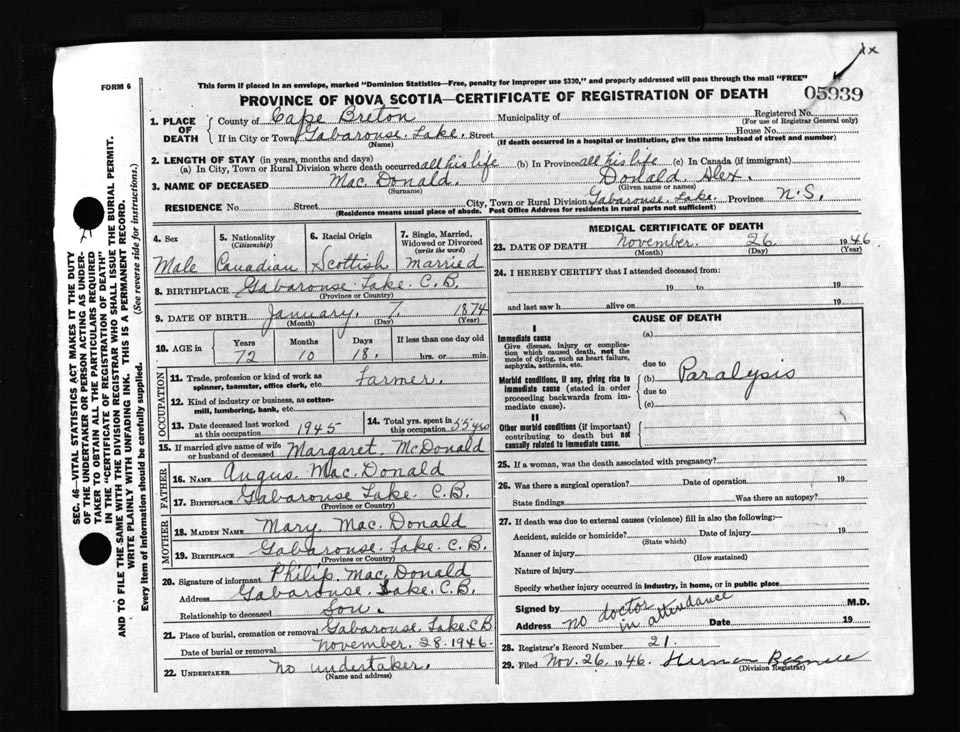 FORM 6
This form if placed in an envelope, marked "Dominion Statistics—Free, penalty for improper use $300," and properly addressed will pass through the mail "FREE"
PROVINCE OF NOVA SCOTIA—CERTIFICATE OF REGISTRATION OF DEATH 05939
1. PLACE OF DEATH County of Cape Breton Municipality of Registered No. (For use of Registrar General only)
If in City or Town Gabarouse Lake. Street House No.
(Name) (If death occurred in a hospital or institution, give the name instead of street and number)
2. LENGTH OF STAY (in years, months and days)
(a) In City, Town or Rural Division where death occurred all his life (b) In Province all his life (c) In Canada (if immigrant)
3. NAME OF DECEASED Mac. Donald. Donald Alex.
(Surname) (Given name or names)
RESIDENCE No. Street City, Town or Rural Division Gabarouse Lake. Province N.S.
(Residence means usual place of abode. Post Office Address for residents in rural parts not sufficient)
4. Sex 5. Nationality (Citizenship) 6. Racial Origin 7. Single, Married, Widowed or Divorced (write the word)
Male Canadian Scottish Married
8. BIRTHPLACE Gabarouse Lake C.B.
(Province or Country)
9. DATE OF BIRTH January. 7. 1874
(Month) (Day) (Year)
10. AGE in Years Months Days If less than one day old
72 10 18. hrs. or min.
OCCUPATION
11. Trade, profession or kind of work as spinner, teamster, office clerk, etc. Farmer.
12. Kind of industry or business, as cotton-mill, lumbering, bank, etc.
13. Date deceased last worked at this occupation 1945 14. Total yrs. spent in this occupation 55 yrs
15. If married give name of wife or husband of deceased Margaret. McDonald
FATHER
16. NAME Angus. Mac. Donald
17. BIRTHPLACE Gabarouse Lake C.B.
(Province or Country)
MOTHER
18. MAIDEN NAME Mary Mac. Donald
19. BIRTHPLACE Gabarouse. Lake C.B.
(Province or Country)
20. Signature of informant Philip. Mac. Donald
Address Gabarouse Lake. C.B.
Relationship to deceased Son.
21. Place of burial, cremation or removal Gabarouse. Lake C.B
Date of burial or removal November. 28. 1946.
22. UNDERTAKER no undertaker.
(Name and address)
MEDICAL CERTIFICATE OF DEATH
23. DATE OF DEATH November. 26. 1946.
(Month) (Day) (Year)
24. I HEREBY CERTIFY that I attended deceased from:
19 to 19
and last saw h alive on 19
CAUSE OF DEATH
I
Immediate cause (a)
Give disease, injury or complication which caused death, not the mode of dying, such as heart failure, asphyxia, asthenia, etc.
due to
Morbid conditions, if any, giving rise to immediate cause (stated in order proceeding backwards from immediate cause).
(b) Paralysis
due to
(c)
II
Other morbid conditions (if important) contributing to death but not causally related to immediate cause.
25. If a woman, was the death associated with pregnancy?
26. Was there a surgical operation? Date of operation 19
State findings Was there an autopsy?
27. If death was due to external causes (violence) fill in also the following:—
Accident, suicide or homicide? Date of injury 19
(State which)
Manner of injury
(How sustained)
Nature of injury
Specify whether injury occurred in industry, in home, or in public place
Signed by no doctor M.D.
Address in attendance Date 19
28. Registrar's Record Number 21.
29. Filed Nov. 26. 1946.
(Division Registrar)
SEC. 46—VITAL STATISTICS ACT MAKES IT THE DUTY
OF THE UNDERTAKER OR PERSON ACTING AS UNDER-
TAKER TO OBTAIN ALL THE PARTICULARS REQUIRED
IN THE "CERTIFICATE OF REGISTRATION OF DEATH"
AND TO FILE THE SAME WITH THE DIVISION REGISTRAR WHO SHALL ISSUE THE BURIAL PERMIT.
WRITE PLAINLY WITH UNFADING INK. THIS IS A PERMANENT RECORD.
Every item of information should be carefully supplied. (See reverse side for instructions.)